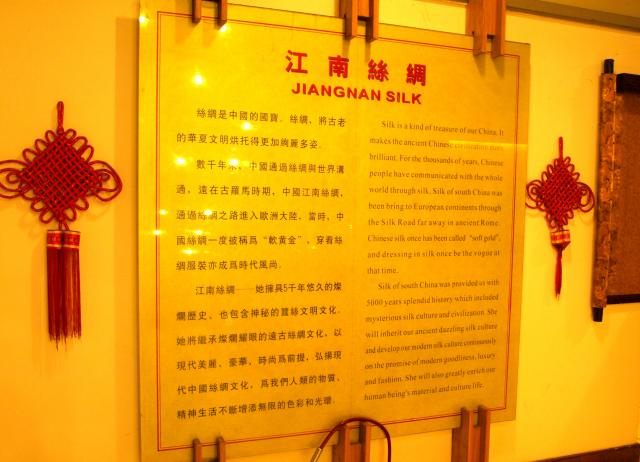 江南絲綢
JIANGNAN SILK
絲綢是中國的國寶。絲綢、將古老
的華夏文明烘托得更加絢麗多姿。
數千年來、中國通過絲綢與世界溝
通。遠在古羅馬時期、中國江南絲綢、
通過絲綢之路進入歐洲大陸。當時、中
國絲綢一度被稱爲“軟黃金”，穿着絲
綢服裝亦成爲時代風尚。
江南絲綢——她擁具5千年悠久的燦
爛歷史、也包含神秘的蠶絲文明文化。
她將繼承燦爛耀眼的遠古絲綢文化，以
現代美麗、豪華、時尚爲前提，弘揚現
代中國絲綢文化，爲我們人類的物質、
精神生活不斷增添無限的色彩和光環。
Silk is a kind of treasure of our China. It
makes the ancient Chinese civilization more
brilliant. For the thousands of years, Chinese
people have communicated with the whole
world through silk. Silk of south China was
been bring to European continents through
the Silk Road far away in ancient Rome.
Chinese silk once has been called "soft gold",
and dressing in silk once be the vogue at
that time.
Silk of south China was provided us with
5000 years splendid history which included
mysterious silk culture and civilization. She
will inherit our ancient dazzling silk culture
and develop our modern silk culture continuously
on the promise of modern goodliness, luxury
and fashion. She will also greatly enrich our
human being's material and culture life.